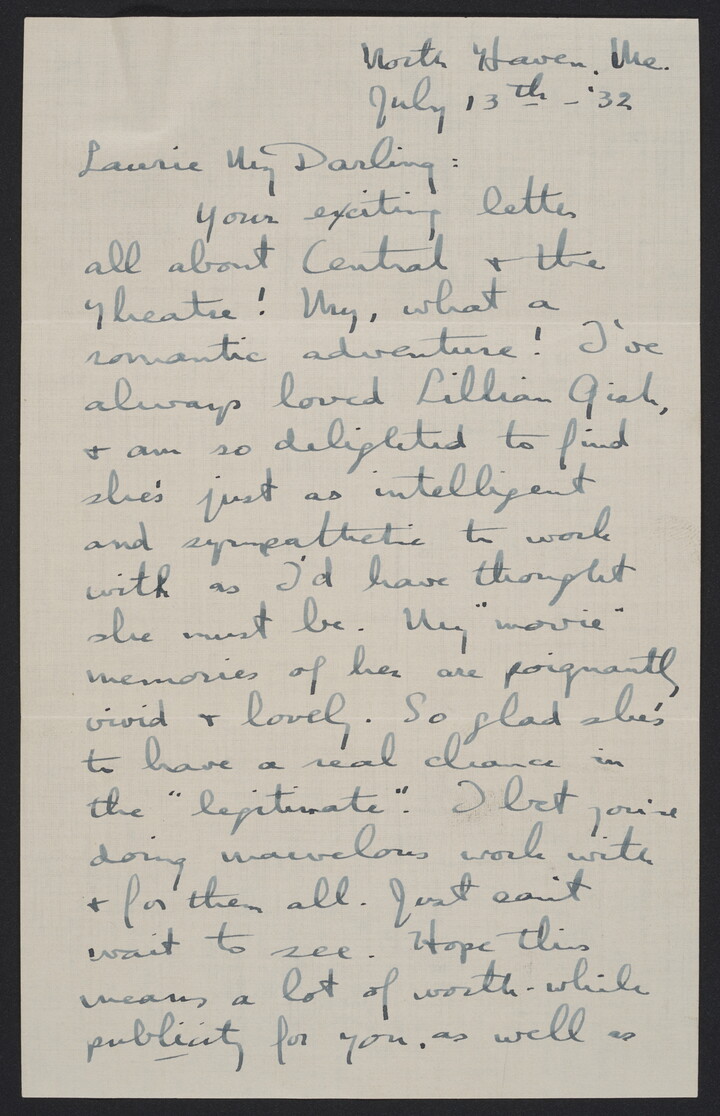 North Haven, Me.
July 13th - '32
Laurie My Darling:
Your exciting letter
all about Central + the
Theatre! My, what a
romantic adventure! I've
always loved Lillian Gish,
+ am so delighted to find
she's just as intelligent
and sympathetic to work
with as I'd have thought
she must be. My "movie"
memories of her are poignantly
vivid + lovely. So glad she's
to have a real chance in
the "legitimate". I bet you're
doing marvelous work with
+ for them all. Just can't
wait to see. Hope this
means a lot of worth-while
publicity for you, as well as